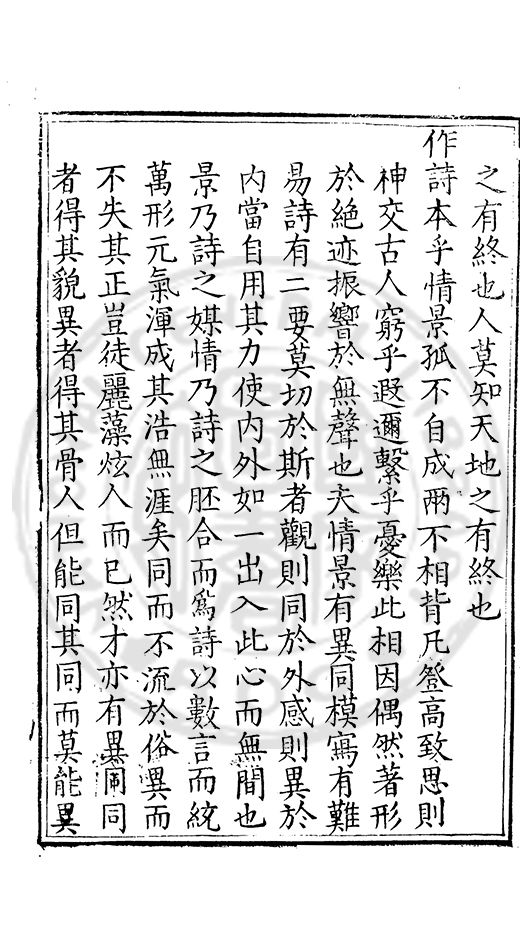 之有終也人莫知天地之有終也
作詩本乎情景孤不自成兩不相背凡登高致思則
神交古人窮乎遐邇繫乎憂樂此相因偶然著形
於絶迹振響於無聲也夫情景有異同模寫有難
易詩有二要莫切於斯者觀則同於外感則異於
内當自用其力使内外如一出入此心而無間也
景乃詩之媒情乃詩之胚合而爲詩以數言而統
萬形元氣渾成其浩無涯矣同而不流於俗異而
不失其正豈徒麗藻炫人而已然才亦有異同同
者得其貌異者得其骨人但能同其同而莫能異